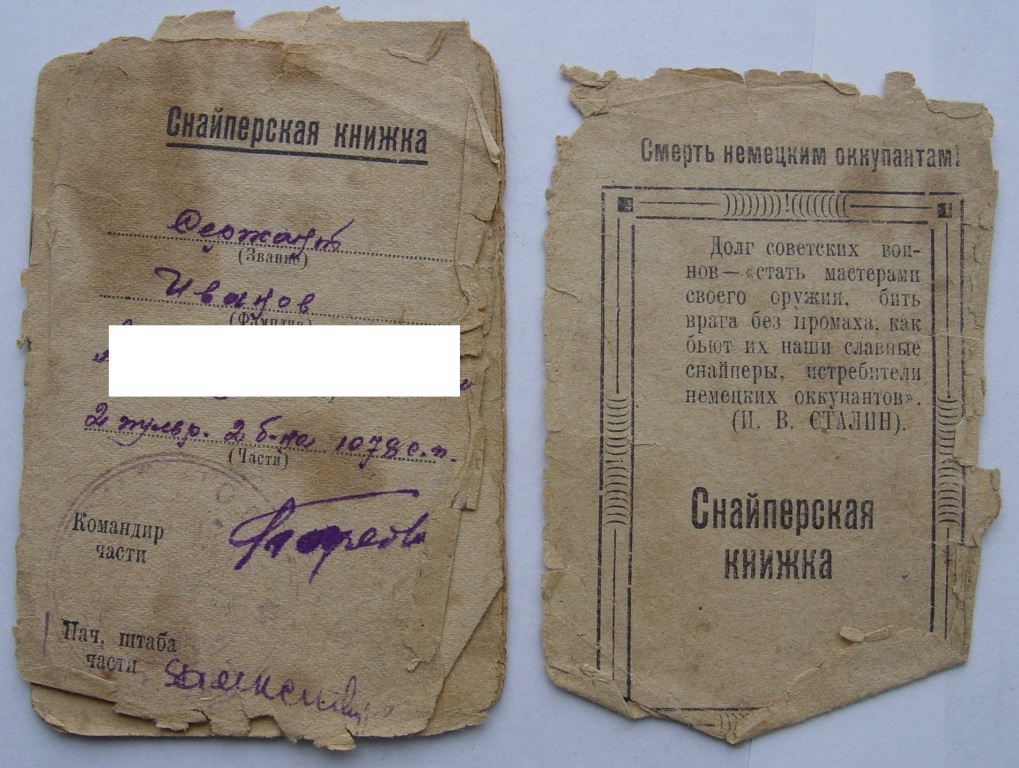 Снайперская книжка
Сержант
(Звание)
Иванов
(Фамилия)
2 пульр. 2 б-на 1078 с.п.
(Части)
Командир
части
Нач. штаба
части
Смерть немецким оккупантам!
Долг советских вои-
нов—«стать мастерами
своего оружия, бить
врага без промаха, как
бьют их наши славные
снайперы, истребители
немецких оккупантов».
(И. В. СТАЛИН).
Снайперская
книжка